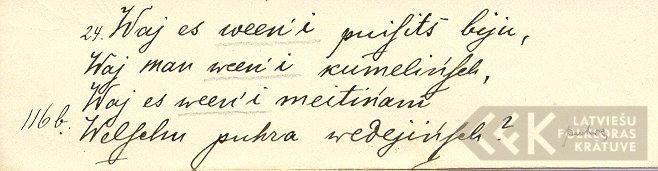 24. Waj es ween'i puisits biju,
Waj man ween'i kumelinsch,
Waj es ween'i meitiņam
116 b. Welschu puhra wedejinsch?
puhra
LATVIEŠU
FOLKLORAS
KRĀTUVE